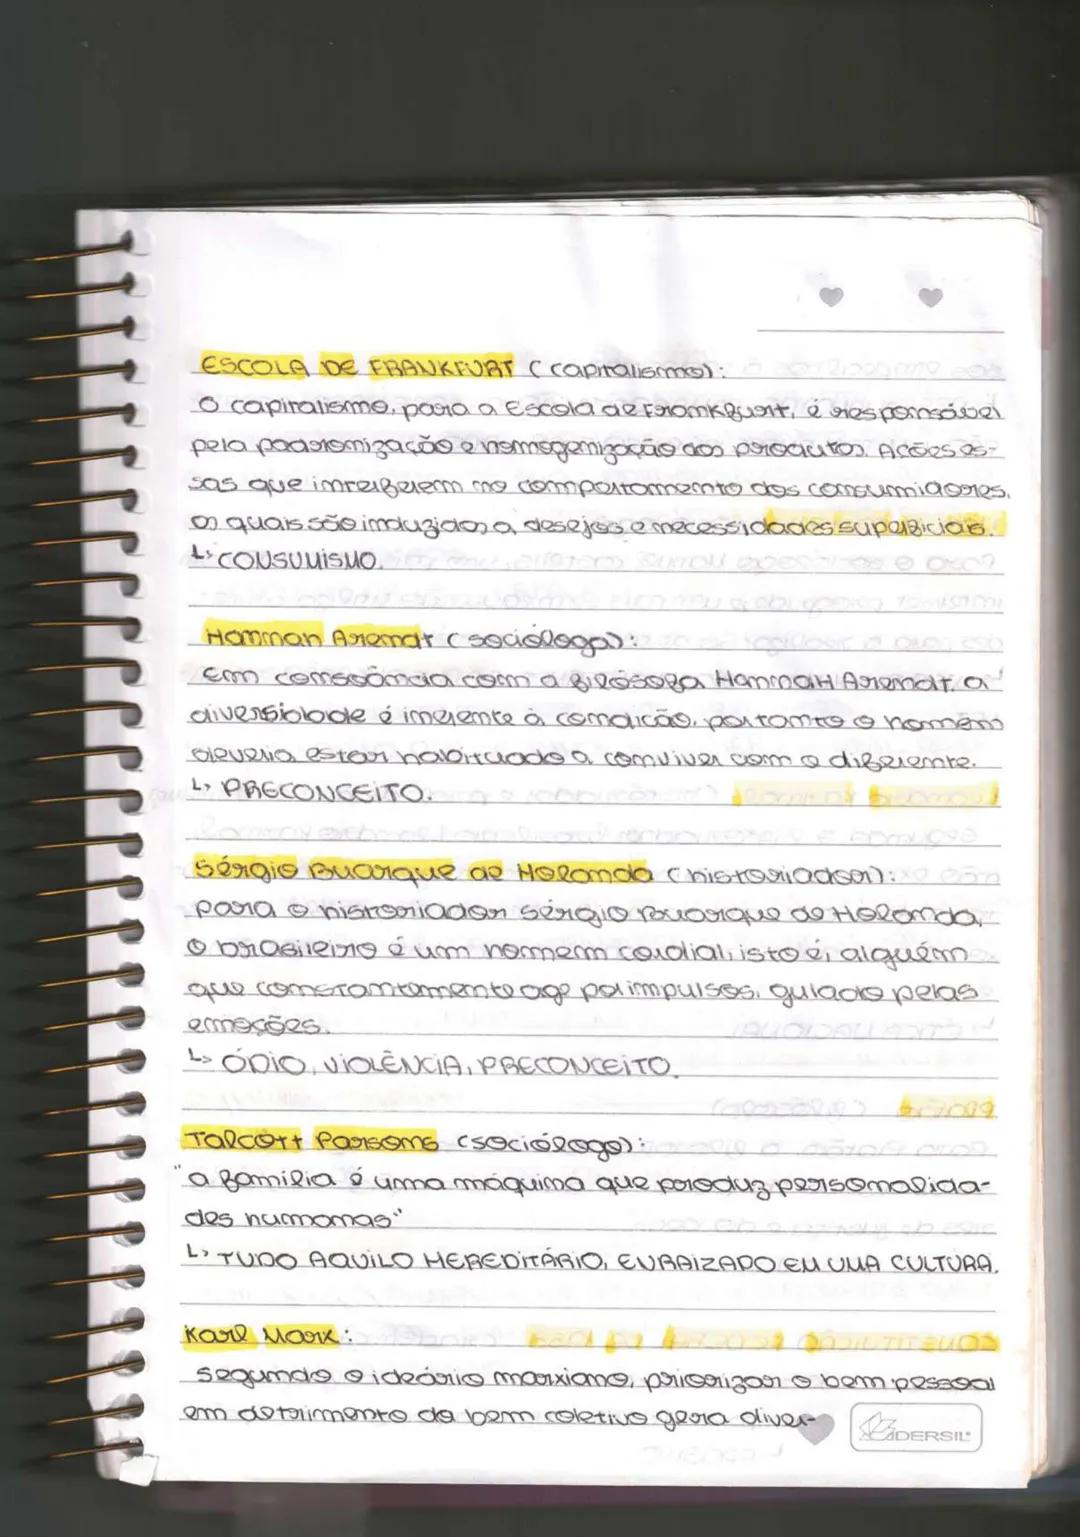 ESCOLA DE FRANKFURT (capitalismo):
O capitalismo, para a Escola de Frankfurt, é responsável
pela padronização e homogenização dos produtos. Ações es-
sas que interferem no comportamento dos consumidores,
os quais são induzidos a desejos e necessidades superficiais.
↳ CONSUMISMO.
Hannah Arendt (socióloga):
Em consonância com a filósofa Hannah Arendt, a
diversidade é inerente à condição, portanto o homem
deveria estar habituado a conviver com o diferente.
↳ PRECONCEITO.
Sérgio Buarque de Holanda (historiador):
para o historiador Sérgio Buarque de Holanda,
o brasileiro é um homem cordial, isto é, alguém
que constantemente age por impulsos, guiado pelas
emoções.
↳ ÓDIO, VIOLÊNCIA, PRECONCEITO.
Talcott Parsons (sociólogo):
"a família é uma máquina que produz personalida-
des humanas"
↳ TUDO AQUILO HEREDITÁRIO, ENRAIZADO EM UMA CULTURA.
Karl Marx:
segundo o ideário marxiano, priorizar o bem pessoal
em detrimento do bem coletivo gera diver-